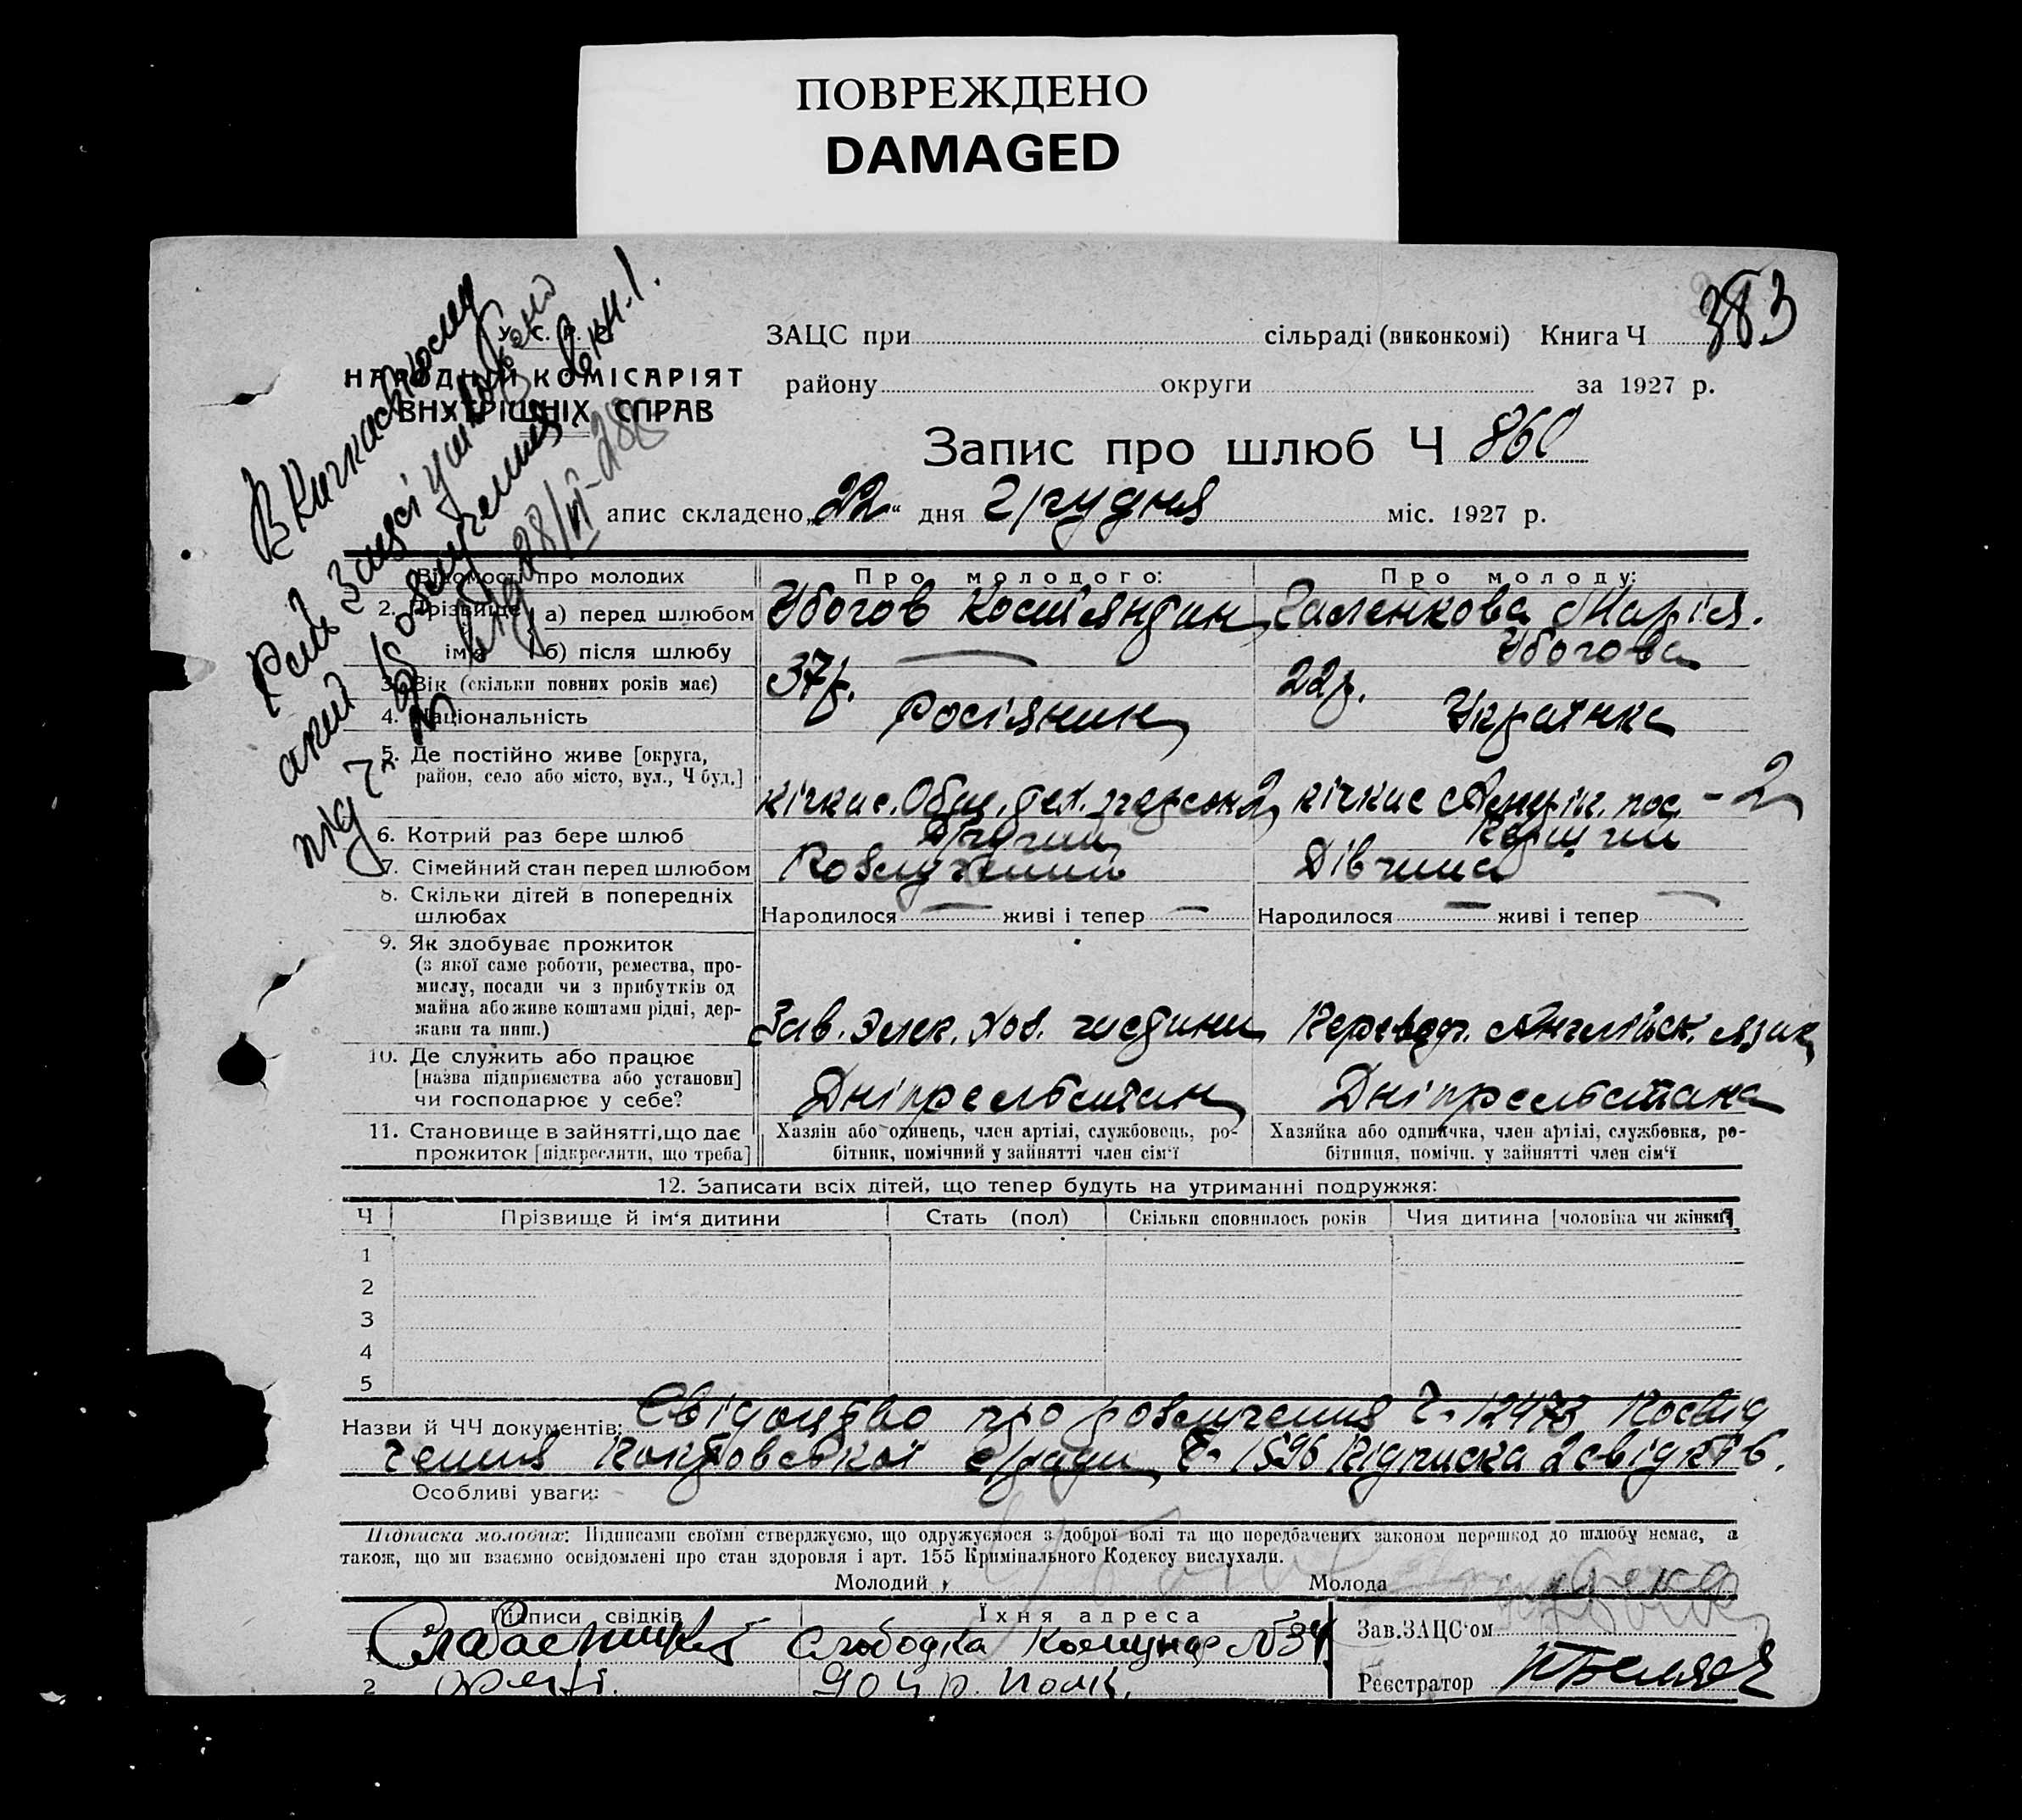 ПОВРЕЖДЕНО
DAMAGED
383
У. С. Р. Р.
НАРОДНІЙ КОМІСАРІЯТ
ВНУТРІШНІХ СПРАВ
ЗАЦС при сільраді (виконкомі) Книга Ч
району округи за 1927 р.
Запис про шлюб Ч 860
апис складено „22“ дня Грудня міс. 1927 р.
В Кичкаському
Рай Загсі
акт розлучення
під Ч
від 28/VI-28
Відомості про молодих Про молодого: Про молоду:
2. Прізвище а) перед шлюбом Убогов Костянтин Галенкова Марія.
ім'я б) після шлюбу — Убогова
3. Вік (скільки повних років має) 37р. 22р.
4. Національність Росіянин Українка
5. Де постійно живе [округа,
район, село або місто, вул., Ч буд.]
Кічкас. 2 Кічкас пос. - 2
6. Котрий раз бере шлюб Другий Перший
7. Сімейний стан перед шлюбом Розлучений Дівчина
8. Скільки дітей в попередніх
шлюбах Народилося — живі і тепер — Народилося — живі і тепер —
9. Як здобуває прожиток
(з якої саме роботи, ремества, про-
мислу, посади чи з прибутків од
майна або живе коштами рідні, дер-
жави та инш.)
Зав. Элек. Хоз. частини Перевод. Англійск. язик
10. Де служить або працює
[назва підприємства або установи]
чи господарює у себе?
Дніпрельстан Дніпрельстана
11. Становище в зайнятті, що дає
прожиток [підкреслити, що треба]
Хазяін або одинець, член артілі, службовець, ро-
бітник, помічний у зайнятті член сім'ї
Хазяйка або одиначка, член артілі, службовка, ро-
бітниця, помічн. у зайнятті член сім'ї
12. Записати всіх дітей, що тепер будуть на утриманні подружжя:
Ч Прізвище й ім'я дитини Стать (пол) Скільки сповнилось років Чия дитина [чоловіка чи жінки]
1
2
3
4
5
Назви й ЧЧ документів: Свідоцтво про розлучення Ч. 12473 Посвід
чення Покровської С/ради Ч. 1596 Підписка 2 свідків.
Особливі уваги:
Підписка молодих: Підписами своїми стверджуємо, що одружуємося з доброї волі та що передбачених законом перешкод до шлюбу немає, а
також, що ми взаємно освідомлені про стан здоровля і арт. 155 Кримінального Кодексу вислухали.
Молодий Молода
Підписи свідків Їхня адреса
Слободка Комунар №34
2
Зав.ЗАЦС'ом
Реєстратор